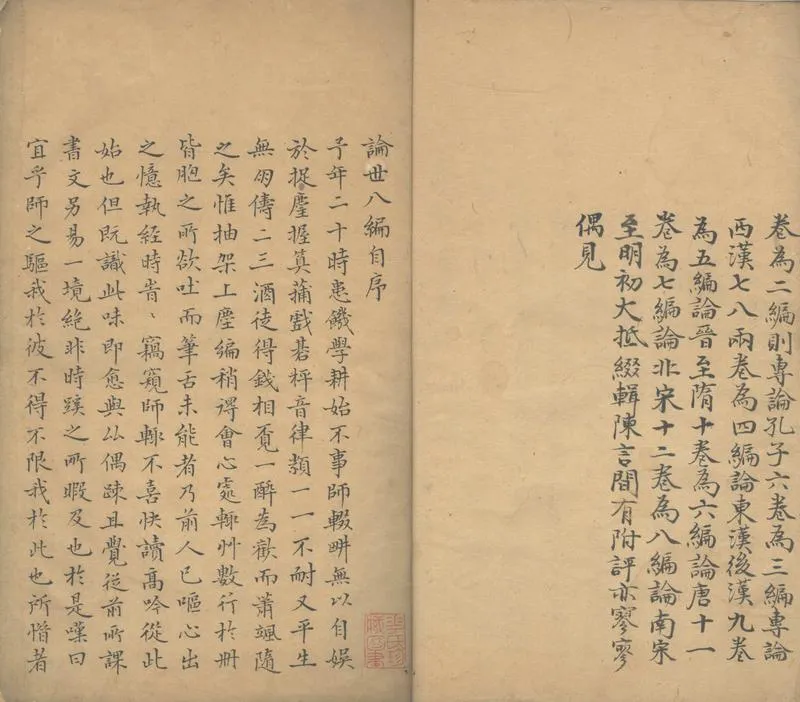 卷為二編則專論孔子六卷為三編專論
西漢七八兩卷為四編論東漢後漢九卷
為五編論晉至隋十卷為六編論唐十一
卷為七編論北宋十二卷為八編論南宋
至明初大抵綴輯陳言間有附評亦寥寥
偶見
論世八編自序
予年二十時患饑學耕始不事師輟畊無以自娛
於捉麈握筭蒲戲碁枰音律類一一不耐又平生
無朋儔二三酒徒得錢相覓一醉為歡而蕭颯隨
之矣惟抽架上塵編稍得會心處輒艸數行於冊
皆胞之所欲吐而筆舌未能者乃前人已嘔心出
之憶執經時昔、竊窺師輒不喜快讀高吟從此
始也但既識此味即愈與么偶踈且覺從前所課
書文另易一境絕非時蹊之所暇及也於是嘆曰
宜乎師之驅我於彼不得不限我於此也所惜者